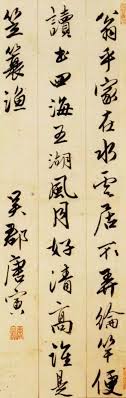 翁平家在水雲居不弄綸竿便
讀書四海五湖風月好清高誰是
笠簑漁 吳郡唐寅